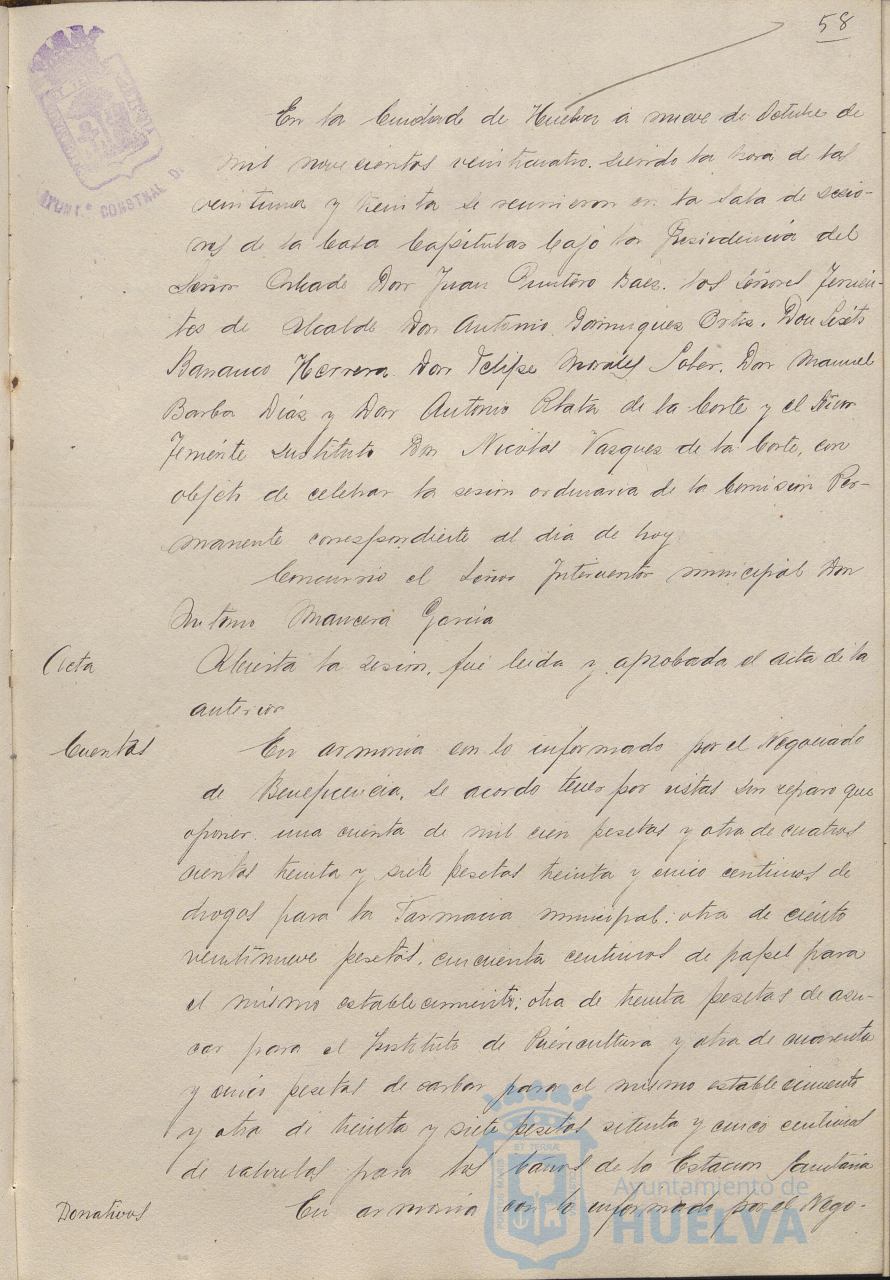 58
AYUNT.º CONSTNAL D
En la Ciudad de Huelva a nueve de Octubre de
mil novecientos veinticuatro. siendo la hora de las
veintiuna y treinta se reunieron en la Sala de sesio-
nes de la Casa Capitular bajo la Presidencia del
Señor Alcalde Don Juan Quintero Baez. los Señores Tenien-
tes de Alcalde Don Antonio Dominguez Ortiz. Don Sixto
Barranco Herrera Don Felipe Morales Soler. Don Manuel
Barba Diáz y Don Antonio Plata de la Corte y el Señor
Teniénte sustituto Don Nicolas Vazquez de la Corte, con
objeto de celebrar la sesion ordinaria de la Comision Per-
manente correspondiente al dia de hoy
Concurrió el Señor Interventor municipal Don
Antonio Mancera Garcia
Acta
Abierta la sesion, fué leida y aprobada el acta de la
anterior
Cuentas
En armonia con lo informado por el Negociado
de Beneficencia, se acordo tener por vistas sin reparo que
oponer una cuenta de mil cien pesetas y otra de cuatros
cientas treinta y siete pesetas treinta y cinco centimos de
drogas para la Farmacia municipal: otra de ciénto
veintinueve pesetas, cincuenta centimos de papel para
el mismo establecimiento; otra de treinta pesetas de azu-
car para el Instituto de Puericultura y otra de cuarenta
y cinco pesetas de carbon para el mismo establecimiento
y otra de treinta y siete pesetas setenta y cinco centimos
de valvulas para los baños de la Estacion Sanitaria
Donativos
En armonia con lo informado por el Nego-
Ayuntamiento de
HUELVA